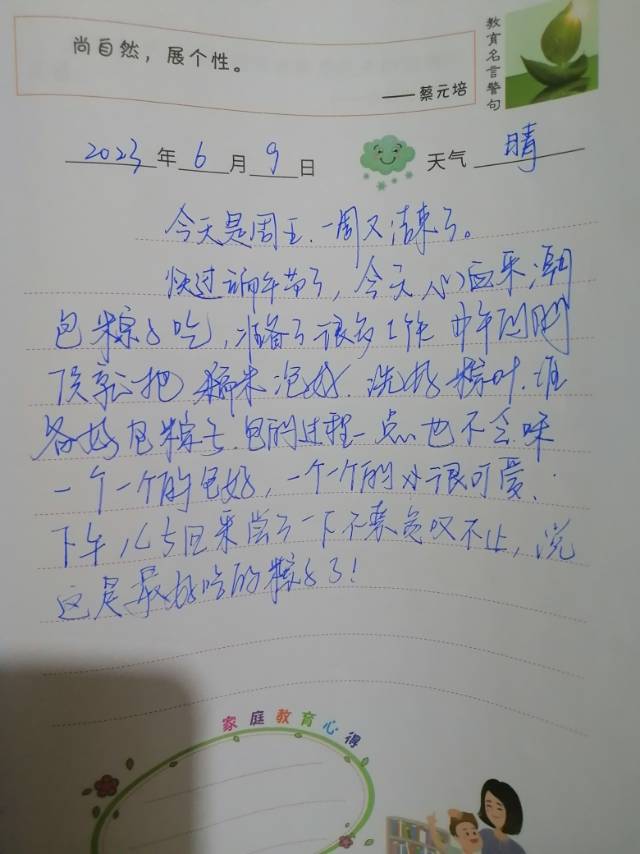 尚自然，展个性。
——蔡元培
教育名言警句
2023年6月9日 天气 晴
今天是周五.一周又结束了。
快过端午节了，今天
包粽子吃，准备了很多工作 中午
就把糯米泡好.洗好粽叶.准
备好包粽子.包的过程一点也不会
一个一个的包好，一个一个的 很可爱.
下午儿子回来尝了一下不 叹不止，说
这是最好吃的粽子了！
家庭教育心得